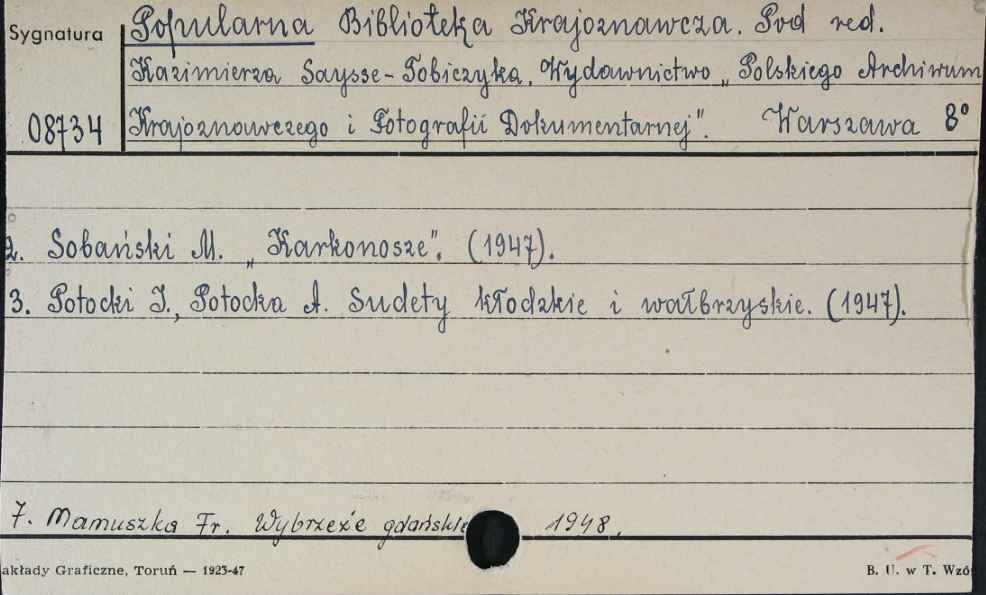 Sygnatura
Popularna Biblioteka Krajoznawcza. Pod red.
Kazimierza Saysse-Tobiczyka. Wydawnictwo „Polskiego Archiwum
08734
Krajoznawczego i Fotografii Dokumentarnej". Warszawa 8°
2. Sobański M. „Karkonosze". (1947).
3. Potocki J., Potocka A. Sudety kłodzkie i wałbrzyskie. (1947).
7. Mamuszka Fr. Wybrzeże gdańskie 1948.
akłady Graficzne, Toruń — 1925-47
B. U. w T. Wzó